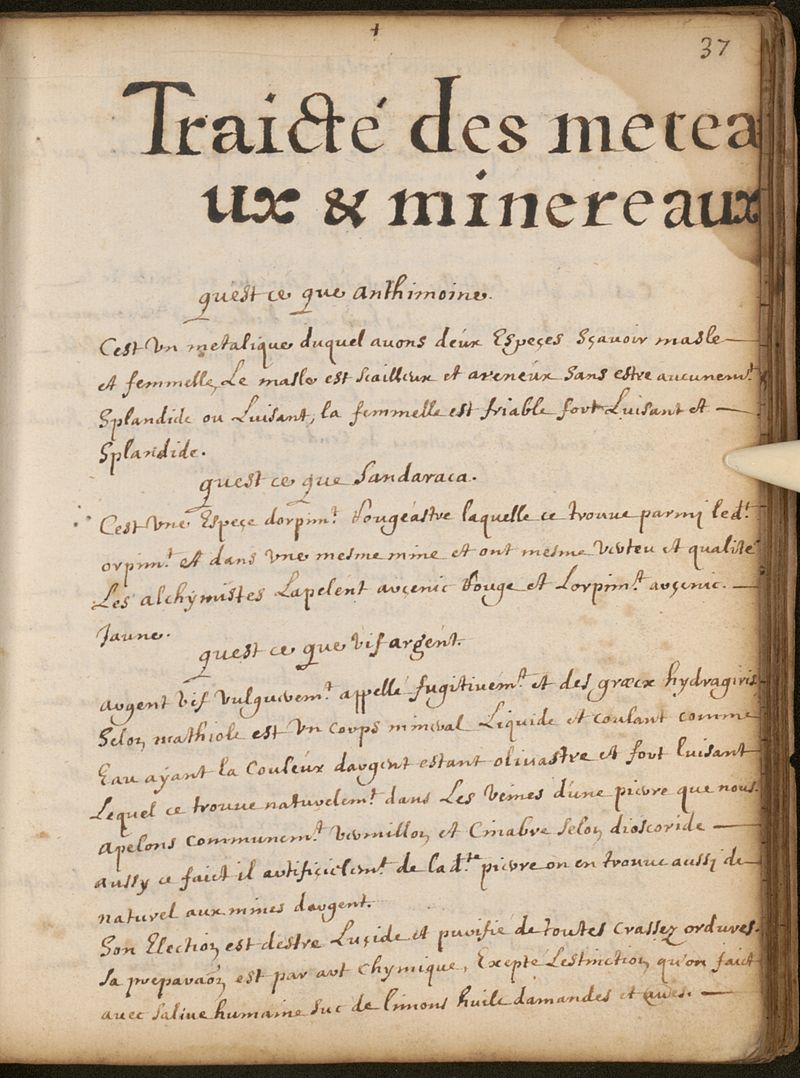 37
Traicté des metea
ux & minereaux
quest ce que anthimoine.
Cest vn metalique duquel auons deux Espeçes sçauoir masle
et femmelle, Le masle est scailleux et areneux sans estre aucunemt
Splandide ou Luisant, la femmelle est friable fort Luisant et
Splandide.
quest ce que Sandaraca.
Cest vne Espeçe dorpimt Rougeastre laquelle ce trouue parmi ledt
orpimt et dans vne mesme mine et ont mesme verteu et qualité
Les alchymistes Lapelent arcenic Rouge et Lorpimt arçenic
Jaune.
quest ce que vif argent.
argent vif vulgueremt appellé fugitiuemt et des græcx hydragiris
Selon mathiole est vn corps mineral Liquide et coulant comme
Eau ayant la Couleur dargent estant oliuastre et fort luisant
Lequel ce trouue naturelemt dans Les veines d'une pierre que nous
apelons communemt vermillon et Cinabre Selon dioscoride
aussy ce faict il artifiçielemt de ladte pierre on en trouue aussi de
naturel aux mines dargent.
Son Election est destre Luçide et purifié de toutes Crassez ordures.
Sa preparaõn est par art Chymique, Exepté Lestinction qu'on faict
auec saliue humaine suc de limons huile damandes et